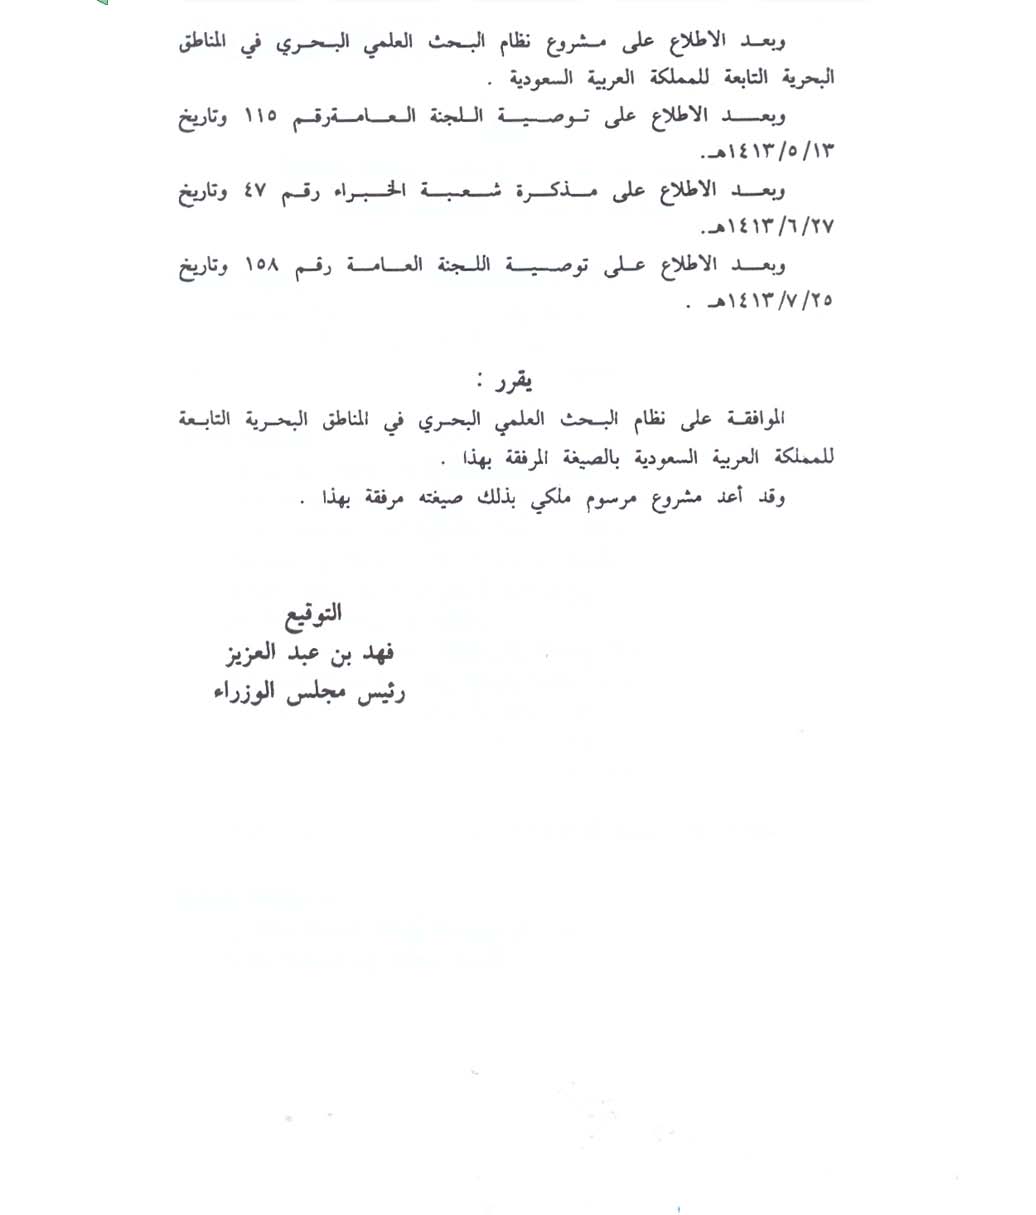 وبعد الاطلاع على مشروع نظام البحث العلمي البحري في المناطق
البحرية التابعة للمملكة العربية السعودية .
وبعد الاطلاع على توصية اللجنة العامةرقم ١١٥ وتاريخ
١٤١٣/٥/١٣هـ.
وبعد الاطلاع على مذكرة شعبة الخبراء رقم ٤٧ وتاريخ
١٤١٣/٦/٢٧هـ.
وبعد الاطلاع على توصية اللجنة العامة رقم ١٥٨ وتاريخ
١٤١٣/٧/٢٥هـ .
يقرر :
الموافقة على نظام البحث العلمي البحري في المناطق البحرية التابعة
للمملكة العربية السعودية بالصيغة المرفقة بهذا .
وقد أعد مشروع مرسوم ملكي بذلك صيغته مرفقة بهذا .
التوقيع
فهد بن عبد العزيز
رئيس مجلس الوزراء